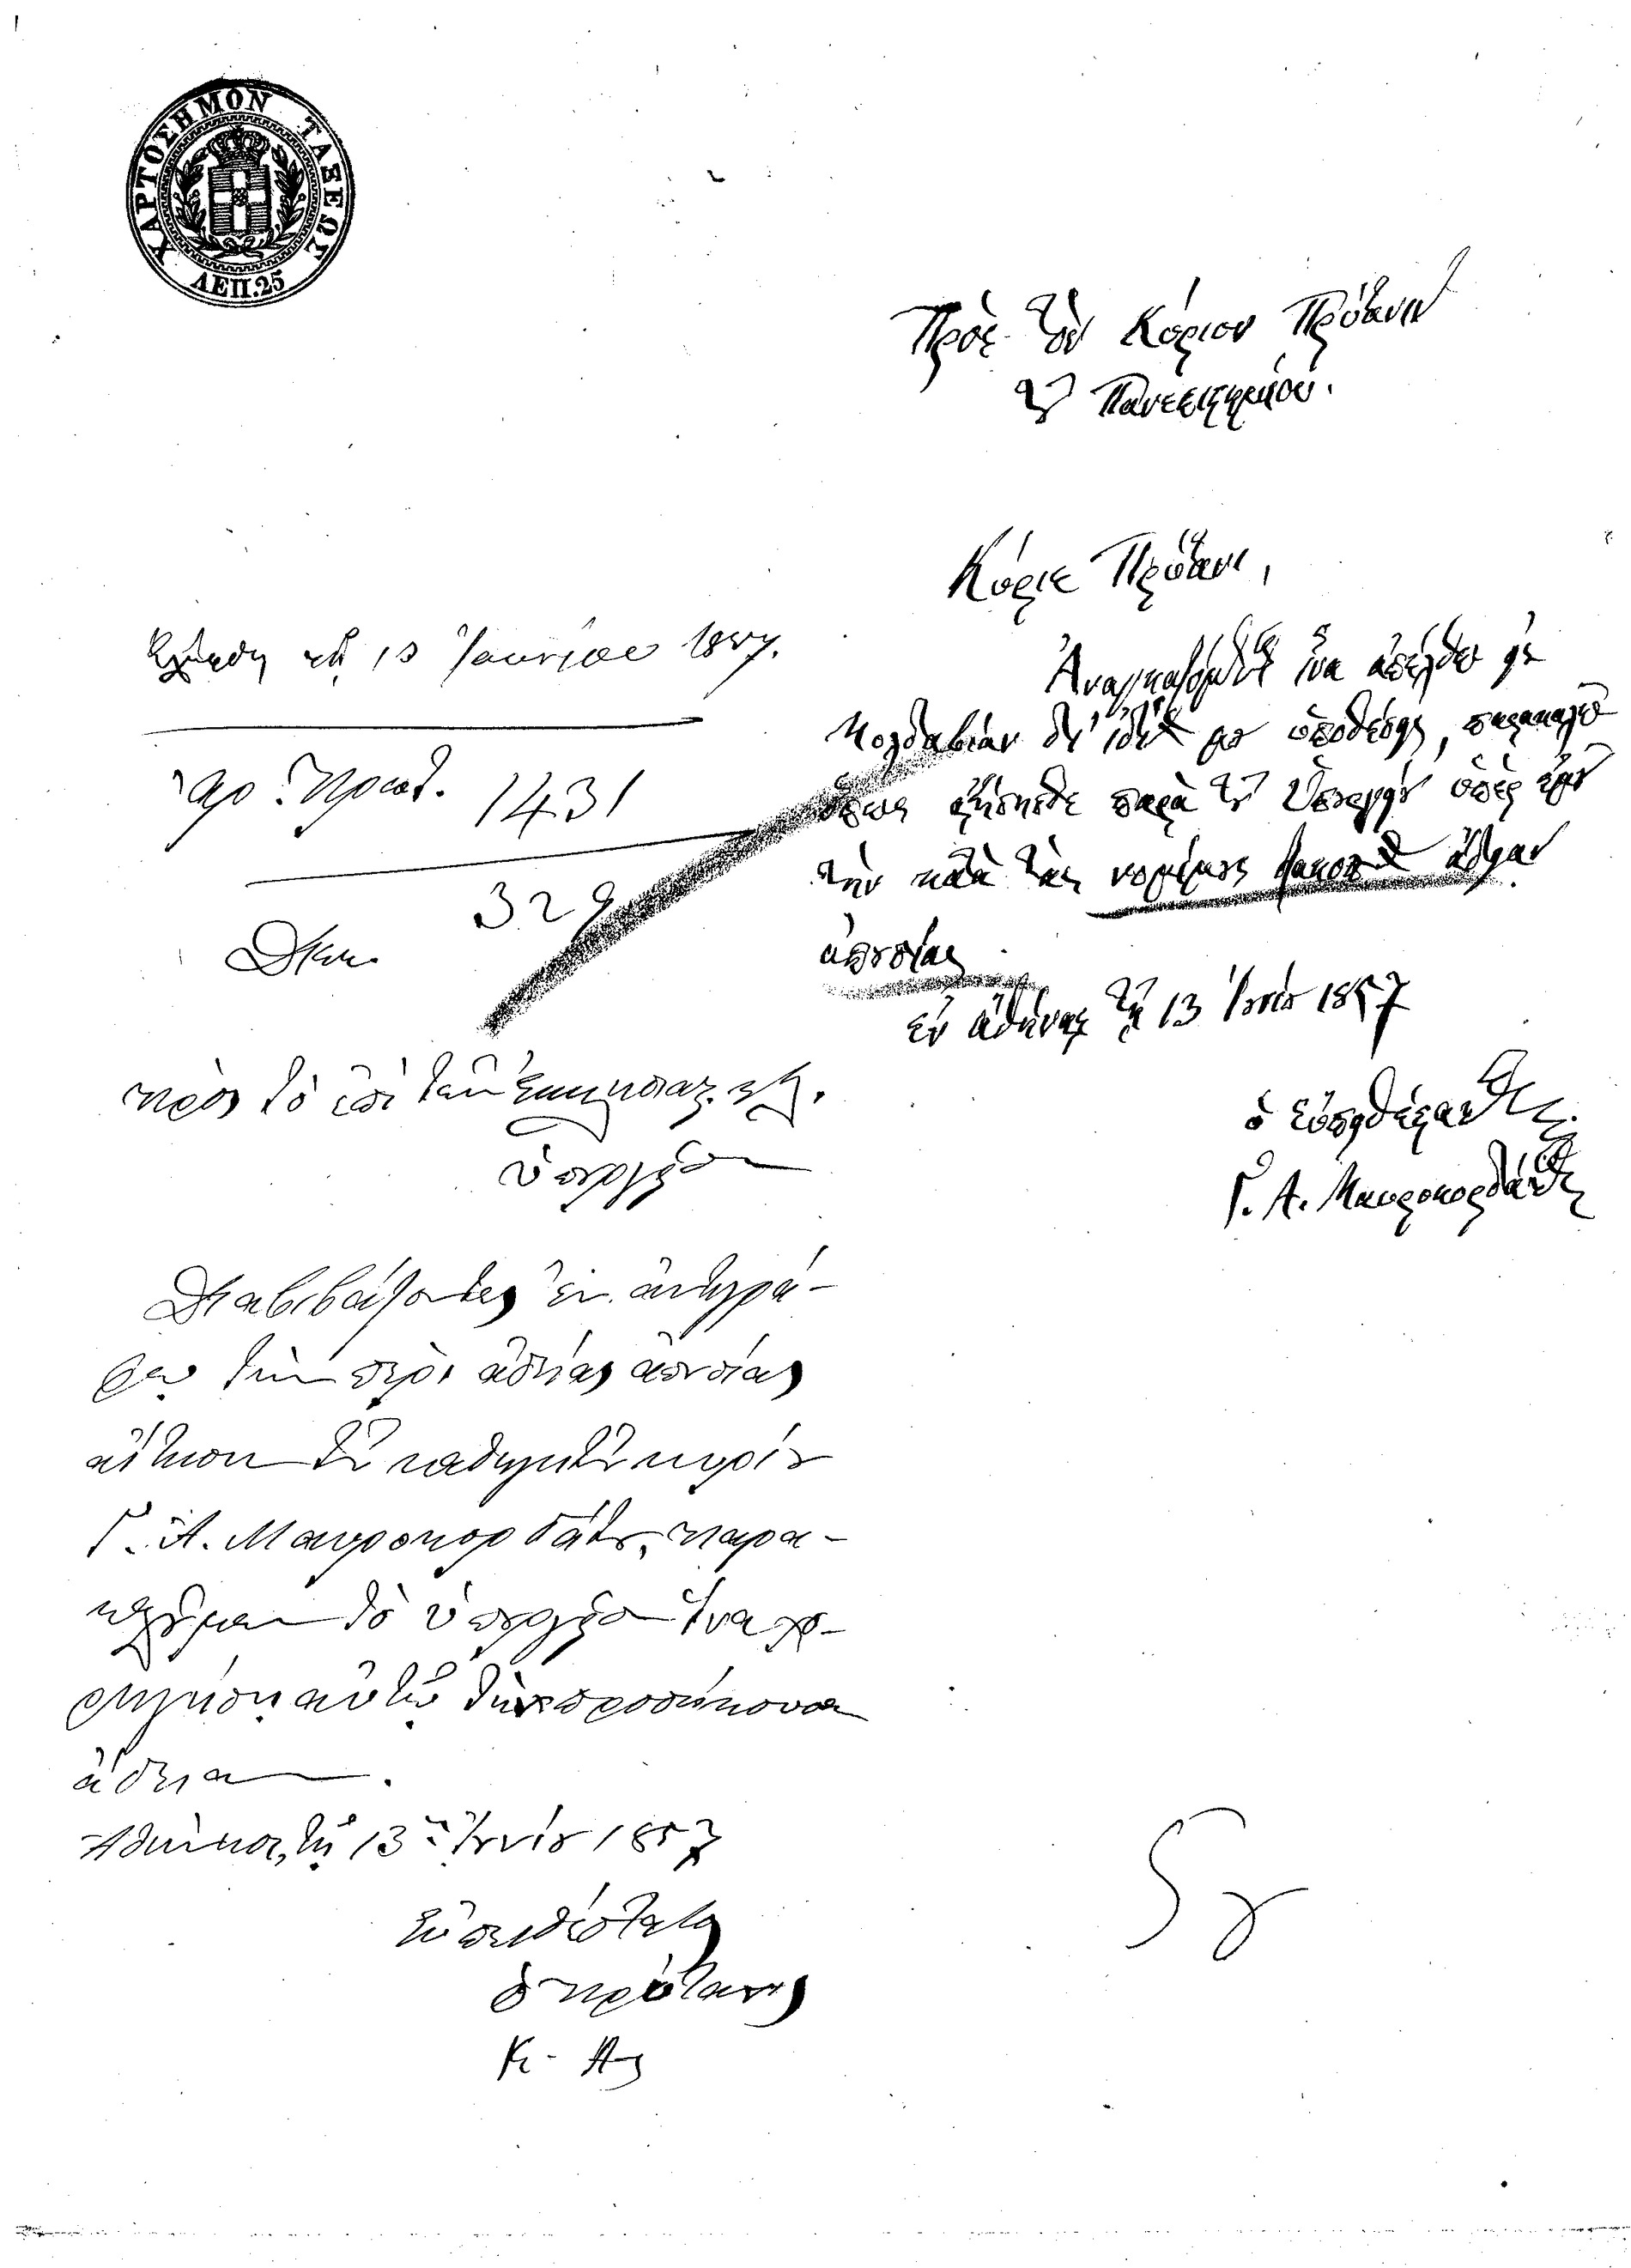 ΧΑΡΤΟΣΗΜΟΝ ΤΑΞΕΩΣ
ΛΕΠ.25
Πρὸς τὸν Κύριον Πρύτανιν
τοῦ Πανεπιστημίου.
Κύριε Πρύτανι,
Ἀναγκαζόμενος ἵνα ἀπέλθω εἰς
Μολδαβίαν δι' ἰδίας μου ὑποθέσεις, παρακαλῶ
ὅπως ζητήσητε παρὰ τοῦ Ὑπουργείου ὑπὲρ ἐμοῦ
τὴν κατὰ τὰς νομίμους ἄδειαν
ἀπουσίας
ἐν Ἀθήναις τῇ 13 Ἰουνίου 1857
ὁ εὐπειθέστατος
Γ. Α. Μαυροκορδάτος
τῇ 13 Ἰουνίου 1857.
Ἀρ. Πρωτ. 1431
329
Διεκ.
Πρὸς τὸ ἐπὶ τῶν Ἐκκλησιας. κτλ.
Ὑπουργεῖον
Διαβιβάζοντες ἐν ἀντιγρά-
φῳ τὴν περὶ ἀδείας ἀπουσίας
αἴτησιν τοῦ καθηγητοῦ κυρίου
Γ. Α. Μαυροκορδάτου, παρα-
καλοῦμεν τὸ ὑπουργεῖον ἵνα χο-
ρηγήσῃ αὐτῷ τὴν προσήκουσαν
ἄδειαν.
Ἀθήνησι, τῇ 13 Ἰουνίου 1857
Εὐπειθέστατος
ὁ Πρύτανις
Κ. Ας